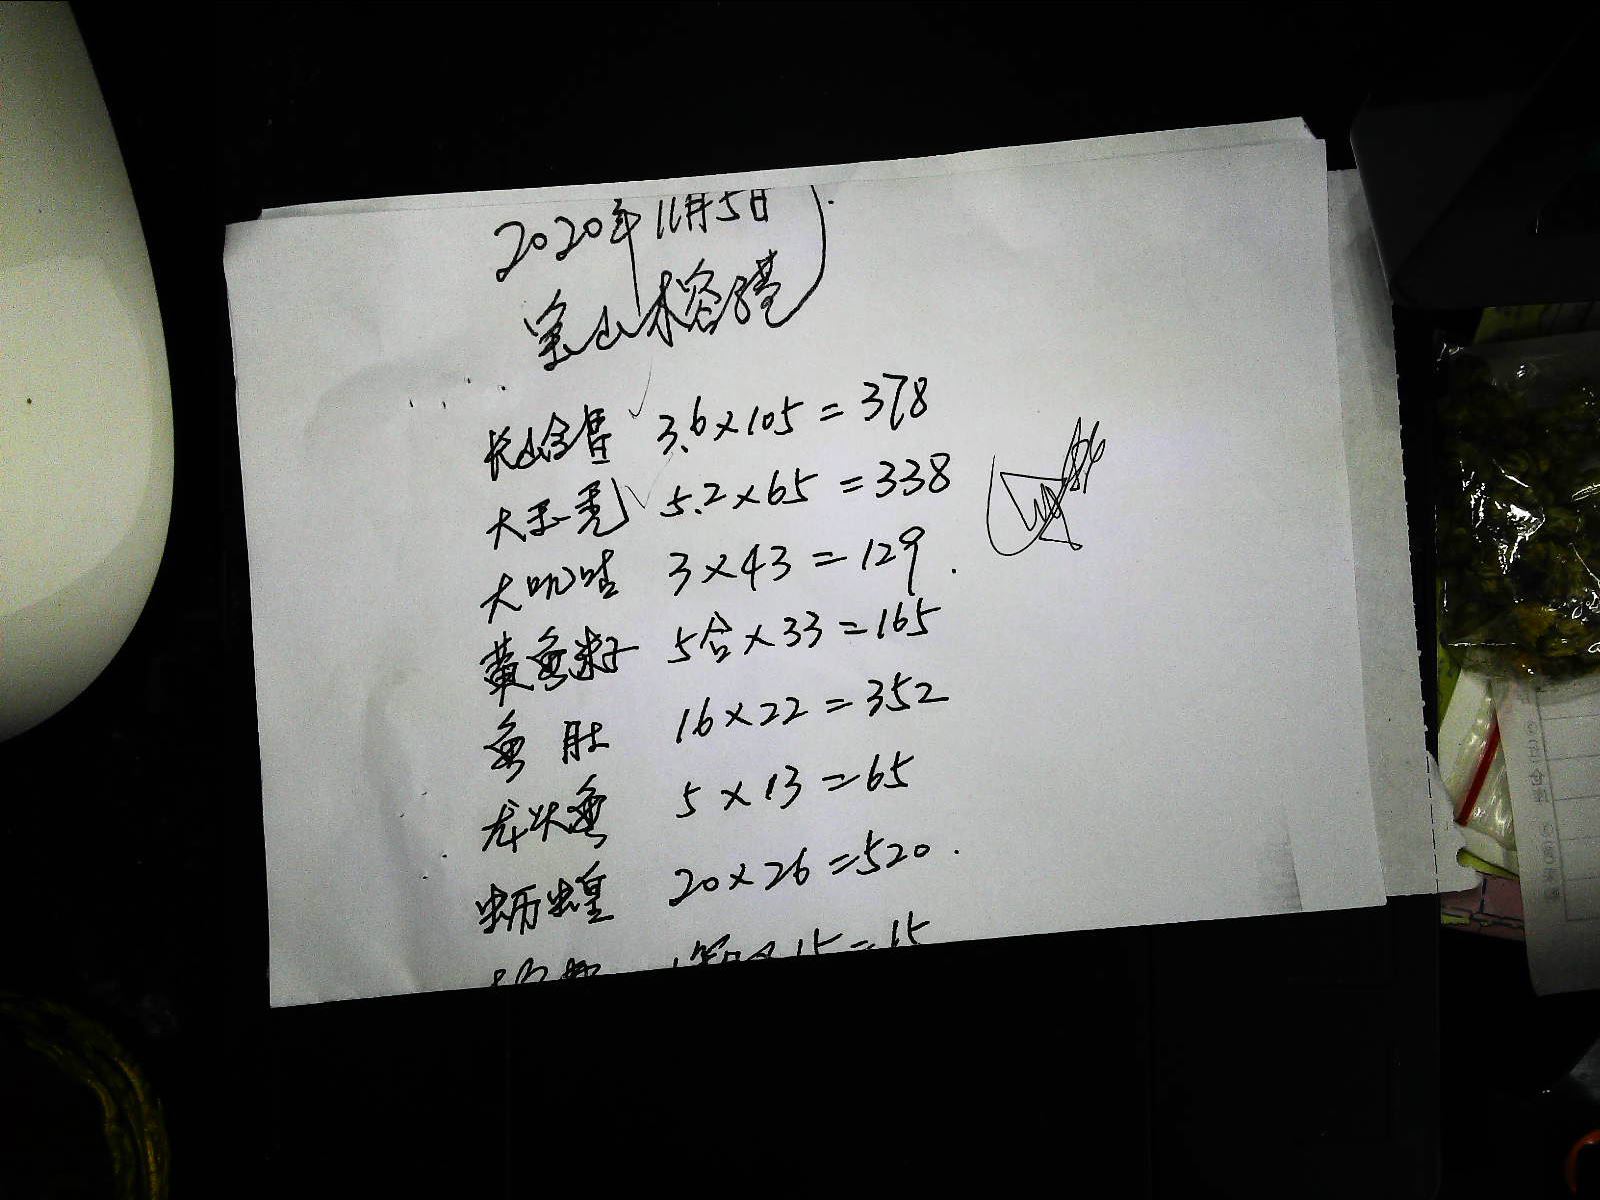 2020年11月5日
宝山榕港
长山仓昌 3.6×105=378
大玉秃 5.2×65=338
大叽咕 3×43=129.
黄鱼籽 5合×33=165
鱼肚 16×22=352
龙头鱼 5×13=65
蛎蝗 20×26=520.
×15=15